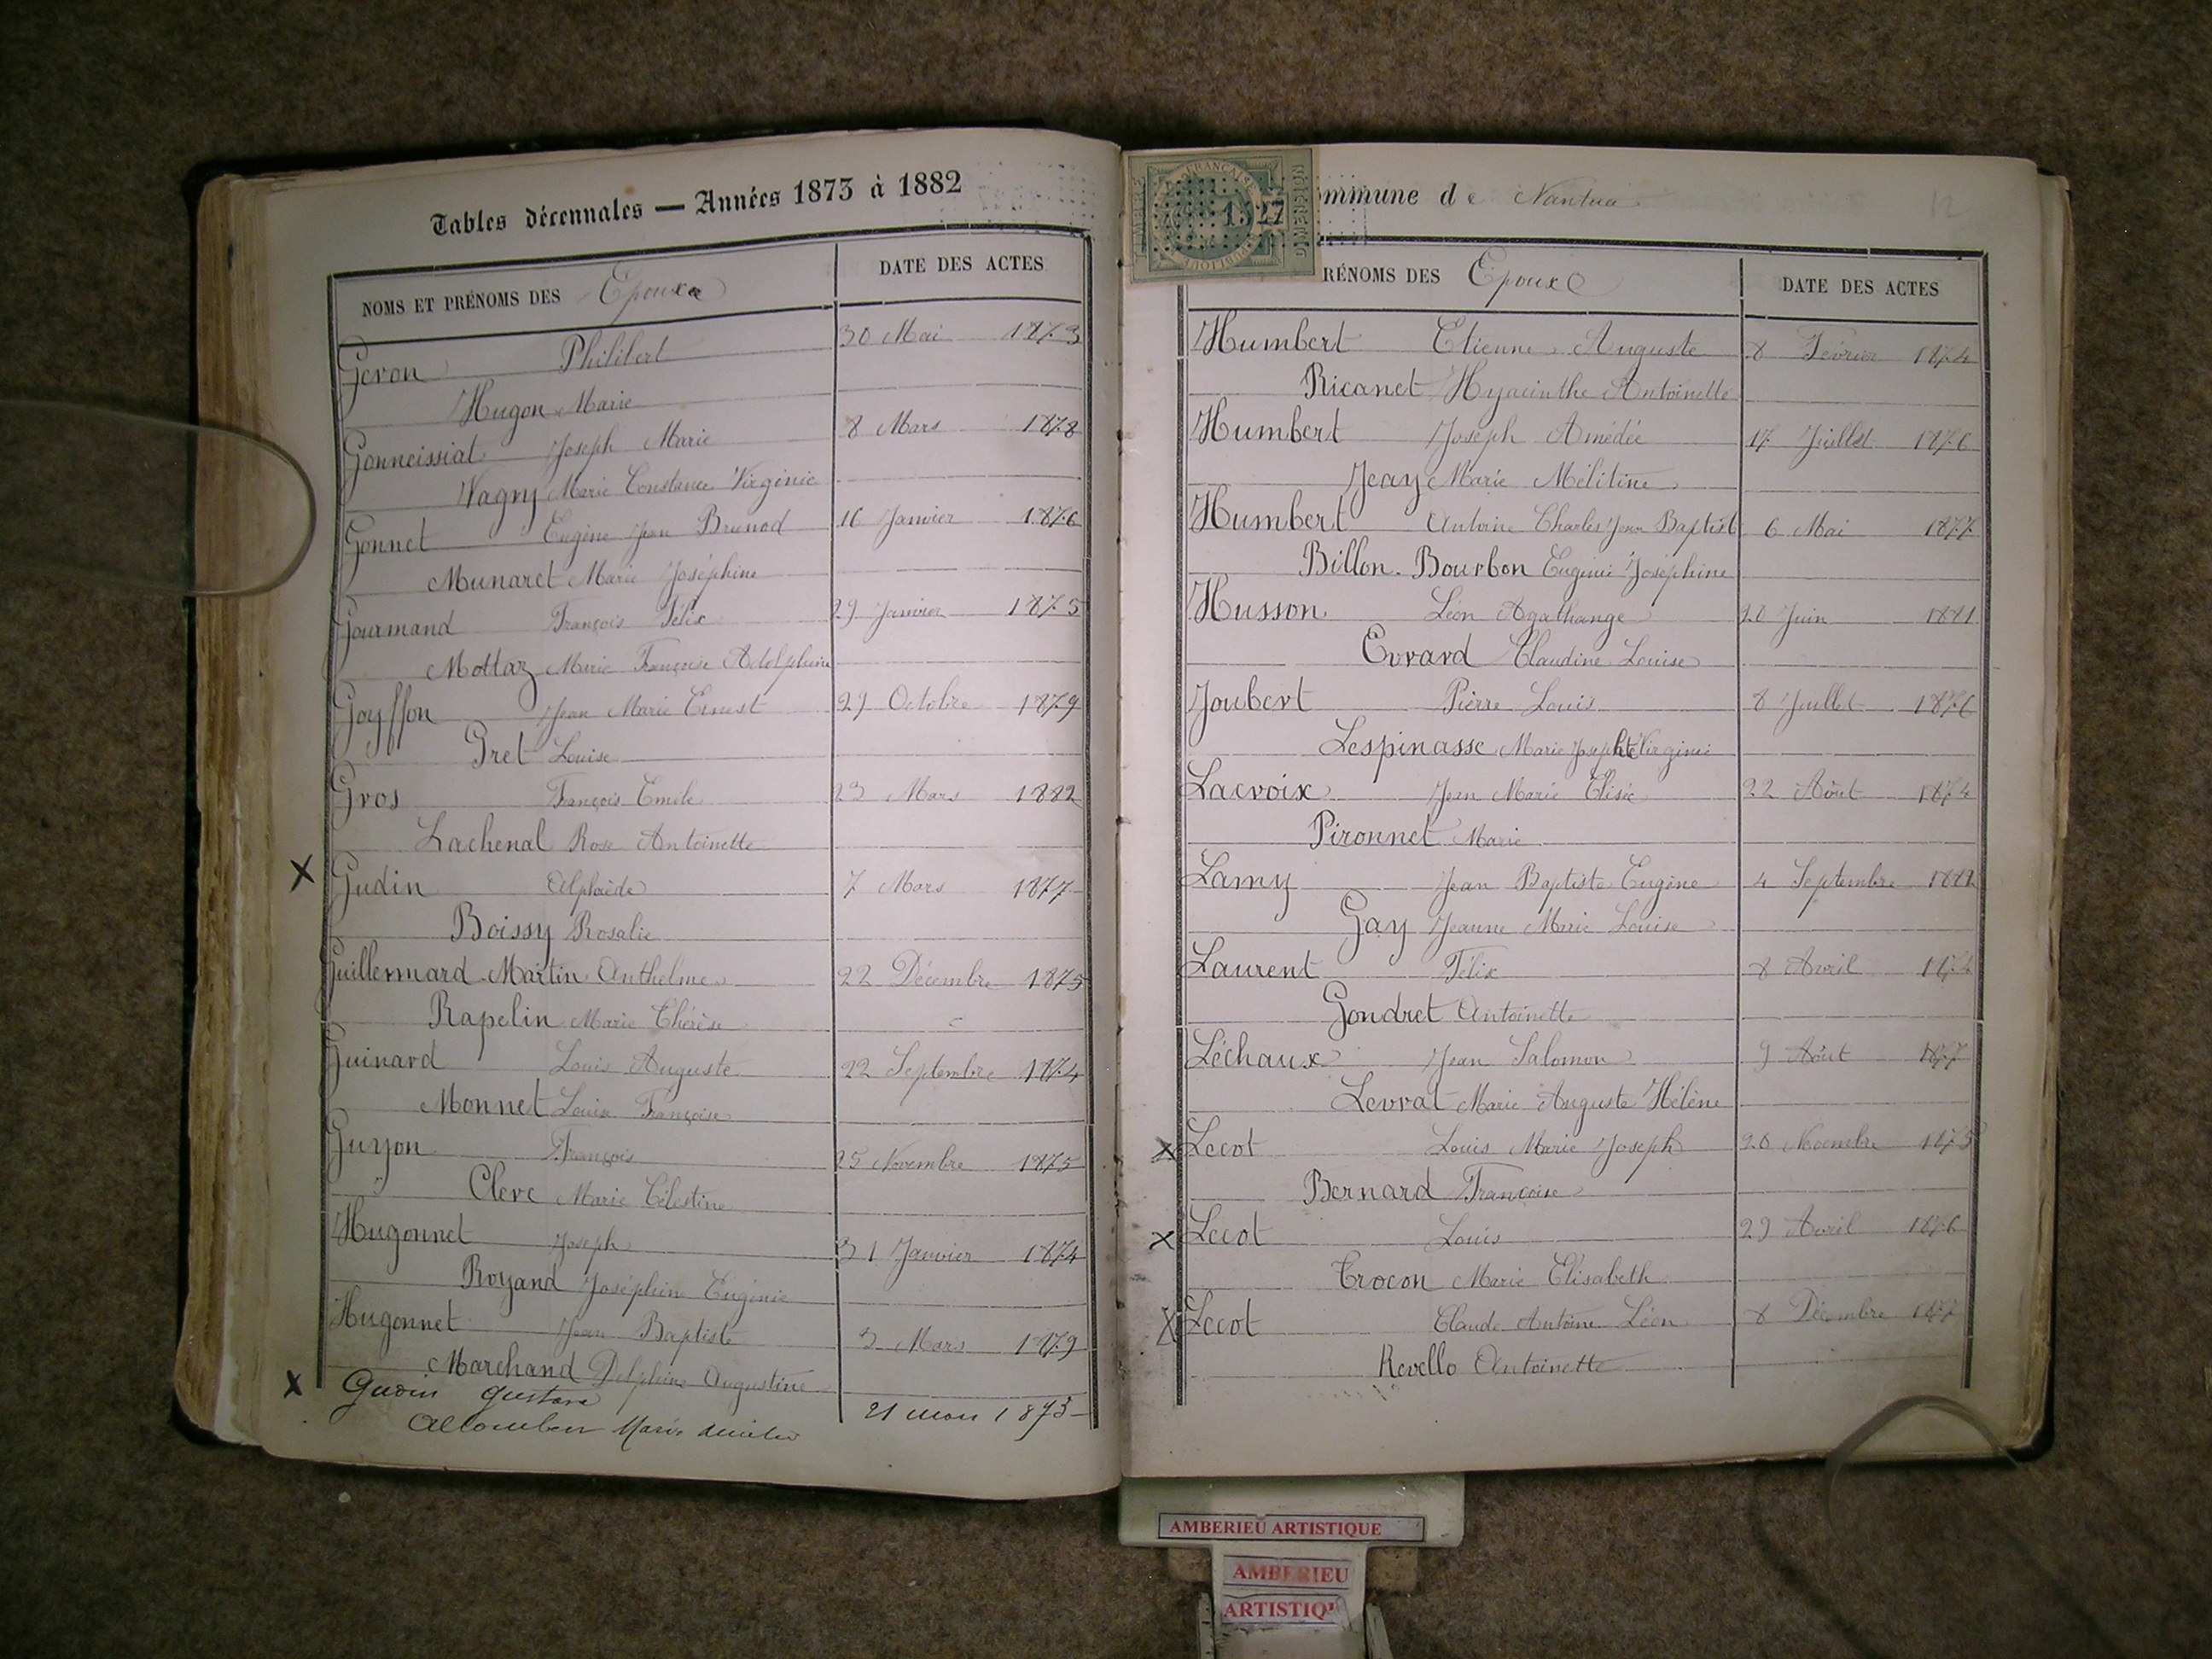 Tables décennales — Années 1873 à 1882
NOMS ET PRÉNOMS DES Epoux
DATE DES ACTES
Geron Philibert 30 Mai 1873
Hugon Marie
Gonneissiat Joseph Marie 8 Mars 1878
Wagny Marie Constance Virginie
Gonnet Eugène Jean Brunod 16 Janvier 1876
Munaret Marie Joséphine
Gourmand François Félix 29 Janvier 1875
Mottaz Marie Françoise Adelphine
Goyffon Jean Marie Ernest 29 Octobre 1879
Gret Louise
Gros François Emile 23 Mars 1882
Lachenal Rose Antoinette
X Gudin 7 Mars 1877
Boissy Rosalie
Guillermard Martin Anthelme 22 Décembre 1875
Rapelin Marie Thérèse
Guinard Louis Auguste 22 Septembre 1874
Monnet Louise Françoise
Guyon François 25 Novembre 1875
Clerc Marie Célestine
Hugonnet Joseph 31 Janvier 1874
Royand Joséphine Eugénie
Hugonnet Jean Baptiste 3 Mars 1879
Marchand Delphine Augustine
X Gustave 21 1873
Marie
ommune de Nantua
12
1527
RÉNOMS DES Epoux
DATE DES ACTES
Humbert Etienne Auguste 8 Février 1874
Ricanet Hyacinthe Antoinette
Humbert Joseph Amédée 17 Juillet 1876
Jeay Marie Mélitine
Humbert Antoine Charles Jean Baptist 6 Mai 1877
Billon-Bourbon Eugénie Joséphine
Husson Léon Agathange 20 Juin 1881
Evrard Claudine Louise
Joubert Pierre Louis 8 Juillet 1876
Lespinasse Marie Josephte Virginie
Lacroix Jean Marie Elisée 22 Août 1874
Pironnet Marie
Lamy Jean Baptiste Eugène 4 Septembre 1882
Gay Jeanne Marie Louise
Laurent Félix 8 Avril 1874
Gondret Antoinette
Léchaux Jean Salomon 9 Août 1877
Levrat Marie Auguste Hélène
X Lecot Louis Marie Joseph 20 Novembre 1875
Bernard Françoise
X Lecot Louis 29 Avril 1876
Crocon Marie Elisabeth
X Lecot Claude Antoine Léon 8 Décembre 1877
Revello Antoinette
AMBERIEU ARTISTIQUE
AMBERIEU
ARTISTIQU